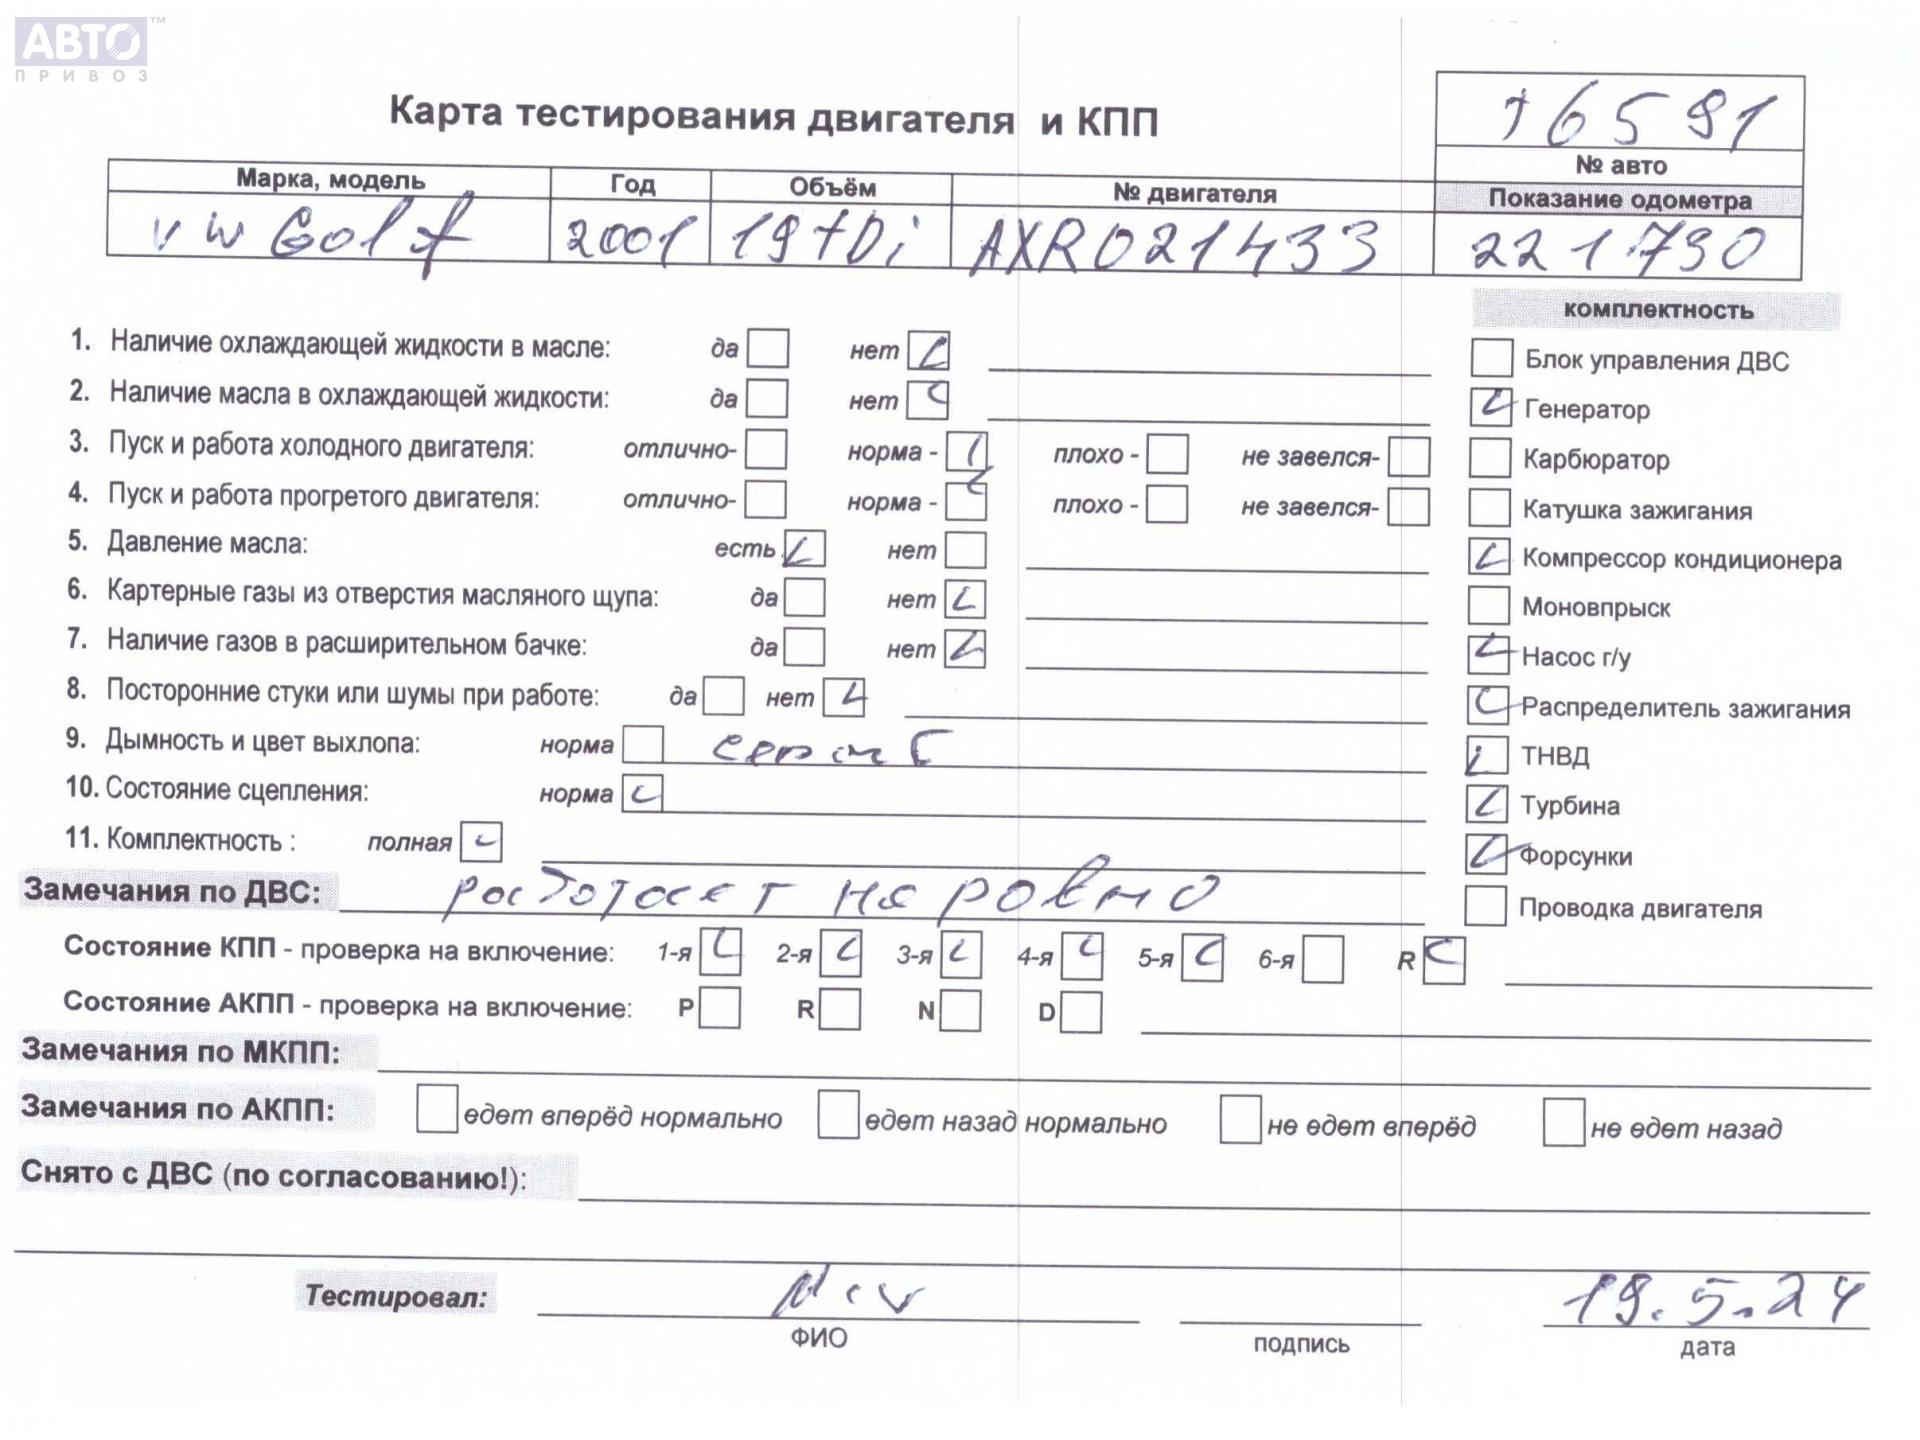 АВТО™
ПРИВОЗ
Карта тестирования двигателя и КПП
16591
№ авто
Марка, модель Год Объём № двигателя Показание одометра
VW Golf 2001 19 tDi AXR021433 221790
комплектность
1. Наличие охлаждающей жидкости в масле: да нет Блок управления ДВС
2. Наличие масла в охлаждающей жидкости: да нет Генератор
3. Пуск и работа холодного двигателя: отлично- норма - плохо - не завелся- Карбюратор
4. Пуск и работа прогретого двигателя: отлично- норма - плохо - не завелся- Катушка зажигания
5. Давление масла: есть нет Компрессор кондиционера
6. Картерные газы из отверстия масляного щупа: да нет Моновпрыск
7. Наличие газов в расширительном бачке: да нет Насос г/у
8. Посторонние стуки или шумы при работе: да нет Распределитель зажигания
9. Дымность и цвет выхлопа: норма ТНВД
10. Состояние сцепления: норма Турбина
11. Комплектность : полная Форсунки
Замечания по ДВС: работает не ровно Проводка двигателя
Состояние КПП - проверка на включение: 1-я 2-я 3-я 4-я 5-я 6-я R
Состояние АКПП - проверка на включение: P R N D
Замечания по МКПП:
Замечания по АКПП: едет вперёд нормально едет назад нормально не едет вперёд не едет назад
Снято с ДВС (по согласованию!):
Тестировал: 19.5.24
ФИО подпись дата